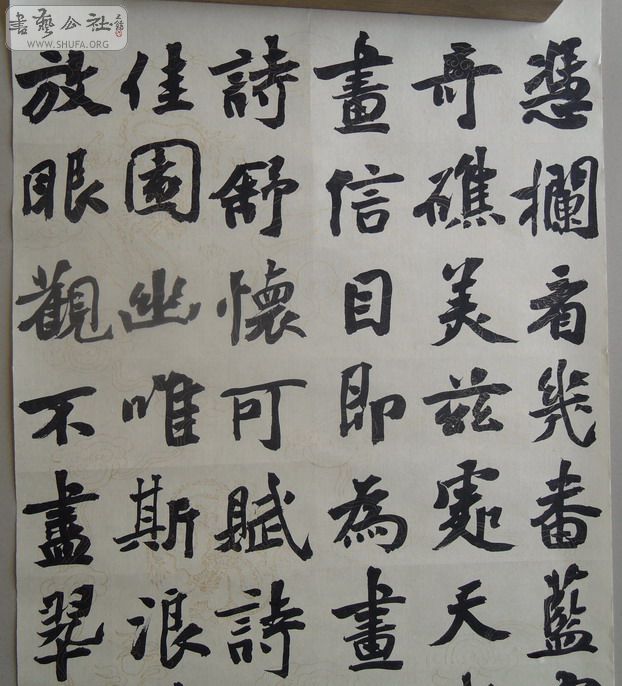 書藝公社
WWW.SHUFA.ORG
憑欄看幾番藍
奇礁美茲處天
畫信目即為畫
詩舒懷可賦詩
佳園幽唯斯浪
放眼觀不盡翠